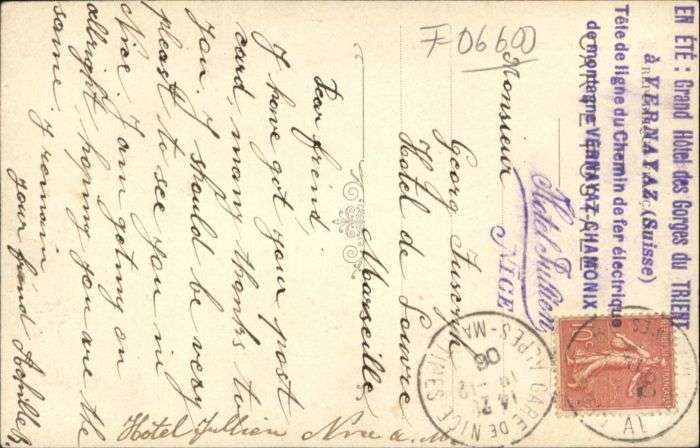 Dear frend,
I have got your post
card, many thanks to
you. I should be very
pleast to see you in
Nice. I am geting on
allright, hoping you are the
same. I remain
your frend
Hotel Jullien Nice
F 06600
EN ÉTÉ : Grand Hôtel des Gorges du TRIENT
à VERNAYAZ (Suisse)
Tête de ligne du Chemin de fer électrique
de montagne VERNAYAZ-CHAMONIX
CARTE POSTALE
Hôtel Jullien
NICE
Monsieur
Georg
Hotel de Louvre
Marseille
GARE DE NICE
ALPES-MARITIMES
06
10c